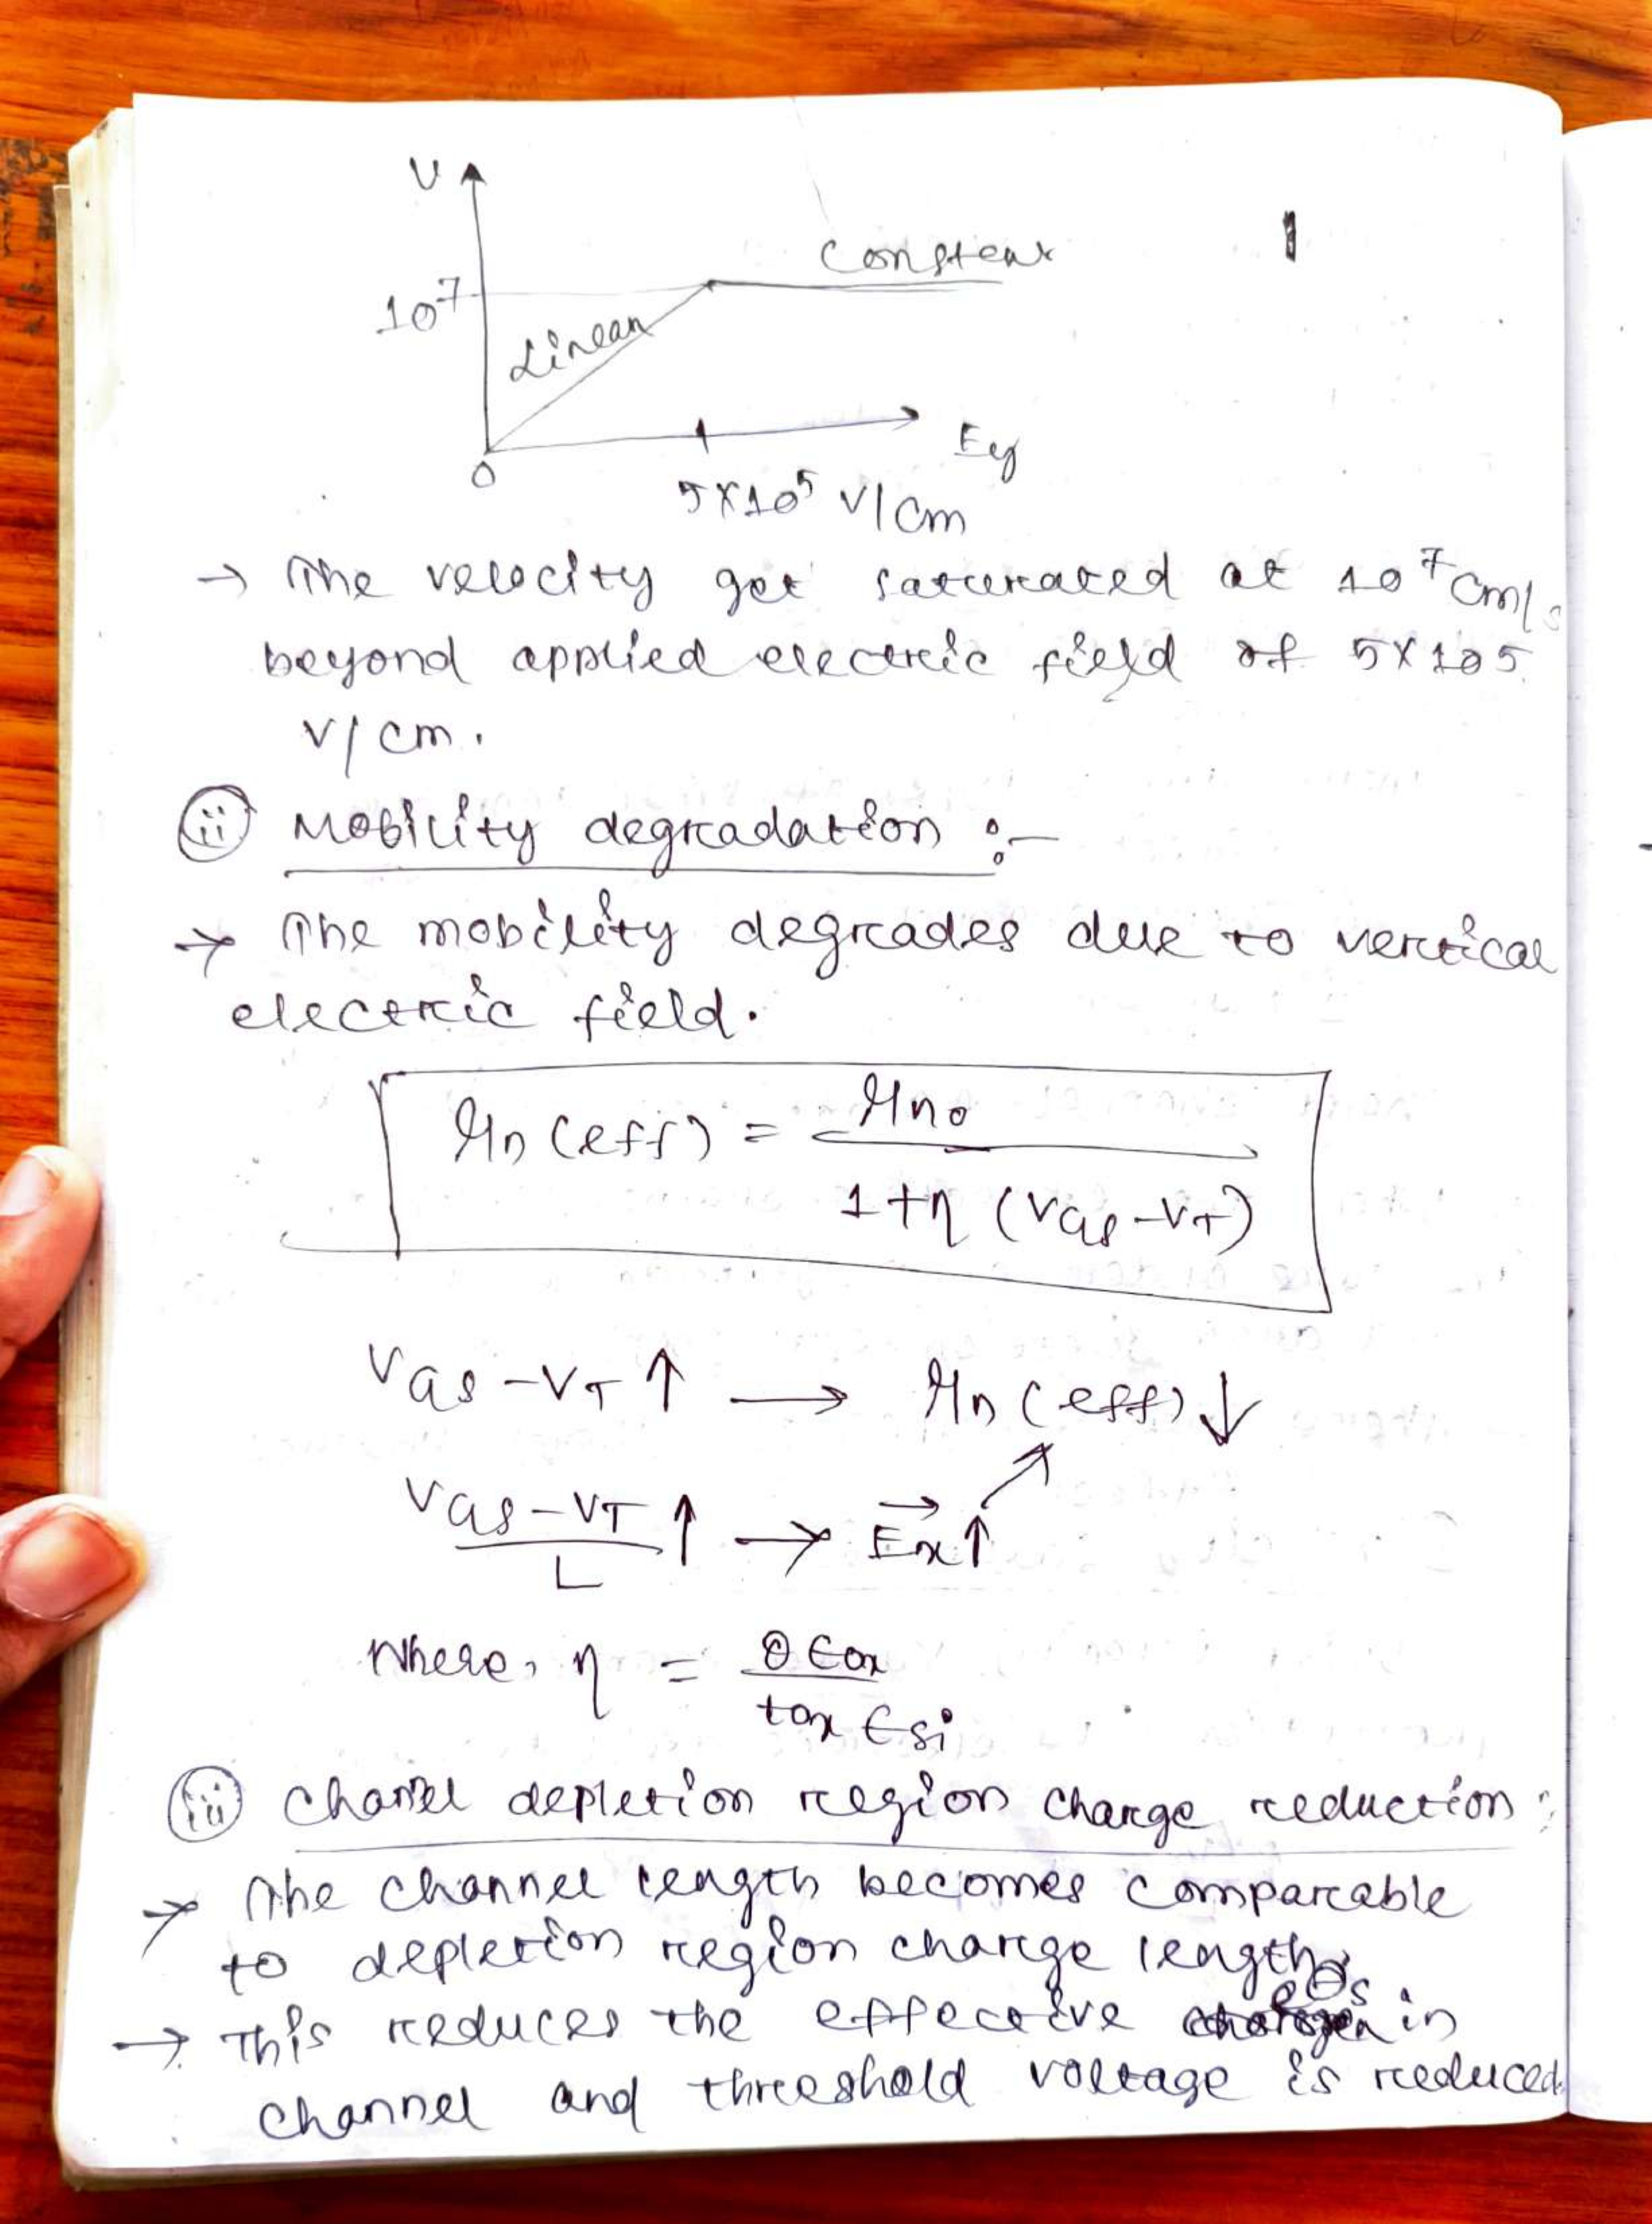 V
Constant
10^7
Linear
0
Ey
5×10^5 V/cm
→ The velocity get saturated at 10^7 cm/s
beyond applied electric field of 5×105
V/cm.
(ii) Mobility degradation :-
→ The mobility degrades due to vertical
electric field.
μn(eff) = μn0 / 1+η (VGS-VT)
VGS-VT ↑ → μn(eff) ↓
VGS-VT / L ↑ → Ex ↑
Where, η = θ Єox / tox Єsi
(iii) Channel depletion region charge reduction :
→ The channel length becomes comparable
to depletion region charge length.
→ This reduces the effective in
channel and threshold voltage is reduced.